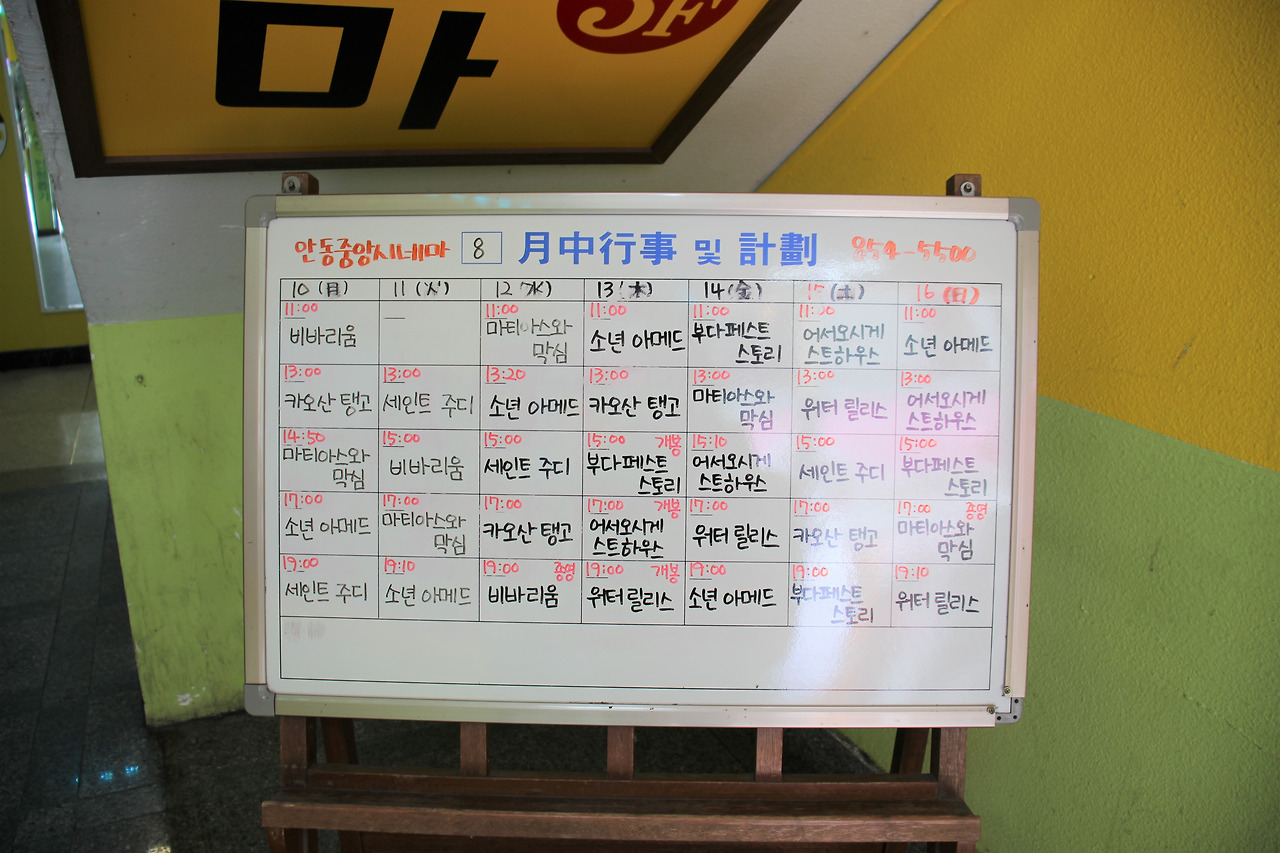 마
SF
안동중앙시네마 8 月中行事 및 計劃 854-5500
10 (月) 11 (火) 12 (水) 13 (木) 14 (金) 15 (土) 16 (日)
11:00 — 11:00 11:00 11:00 11:20 11:00
비바리움 마티아스와 막심 소년 아메드 부다페스트 스토리 어서오시게 스트하우스 소년 아메드
13:00 13:00 13:20 13:00 13:00 13:00 13:00
카오산 탱고 세인트 주디 소년 아메드 카오산 탱고 마티아스와 막심 워터 릴리스 어서오시게 스트하우스
14:50 15:00 15:00 15:00 개봉 15:10 15:00 15:00
마티아스와 막심 비바리움 세인트 주디 부다페스트 스토리 어서오시게 스트하우스 세인트 주디 부다페스트 스토리
17:00 17:00 17:00 17:00 개봉 17:00 17:00 17:00 종영
소년 아메드 마티아스와 막심 카오산 탱고 어서오시게 스트하우스 워터 릴리스 카오산 탱고 마티아스와 막심
19:00 19:10 19:00 종영 19:00 개봉 19:00 19:00 19:10
세인트 주디 소년 아메드 비바리움 워터 릴리스 소년 아메드 부다페스트 스토리 워터 릴리스